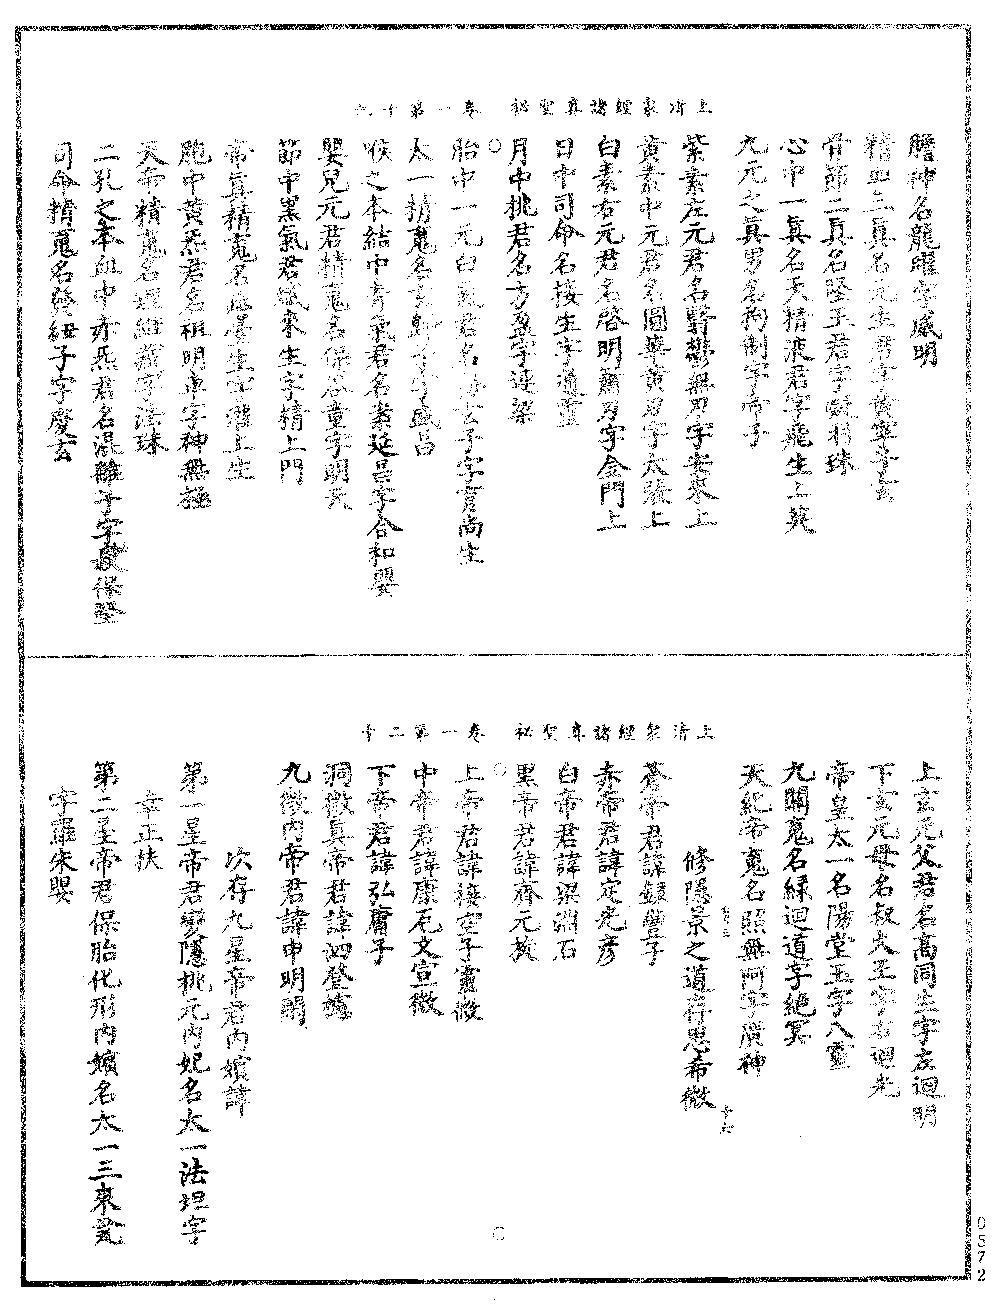 上清衆經諸真聖祕　卷一第十九
膽神名龍曜字威明
精血三真名元生君字黃寧子玄
骨節二真名堅玉君字凝羽珠
心中一真名天精液君字飛生上英
九元之真男名拘制字帝子
紫素左元君名翳鬱無刃字安來上
黃素中元君名圓華黃刃字太張上
白素右元君名啓明蕭刃字金門上
日中司命名接生字道靈
月中桃君名方盈字運梁
胎中一元白氣君名務玄子字育尚生
太一精䰟名玄歸子字盛昌
喉之本結中青氣君名案延昌字合和嬰
嬰兒元君精䰟名保谷童字明夭
節中黑氣君名斌來生字精上門
帝真精䰟名幽臺生字灌上生
胞中黃炁君名祖明車字神無極
天帝精䰟名理維藏字法珠
二孔之本血中赤炁君名混離子字叔保堅
司命精䰟名發紐子字慶玄
上清衆經諸真聖祕　卷一第二十
上玄元父君名高同生字左迴明
下玄元母名叔火王字右迴光
帝皇太一名陽堂玉字八靈
九關䰟名綠迴道字絕冥
天紀帝䰟名照無阿字廣神
修隱景之道存思希微
蒼帝君諱錄豐子
赤帝君諱定光彥
白帝君諱梁淵石
黑帝君諱齊元族
上帝君諱接空子靈微
中帝君諱康石文宣微
下帝君諱弘庸子
洞微真帝君諱泗登
九微內帝君諱申明闕
次存九星帝君內嬪諱
第一星帝君變隱桃元內妃名太一法坦字
幸正扶
第二星帝君保胎化形內嬪名太一三來
字羅朱嬰
0572